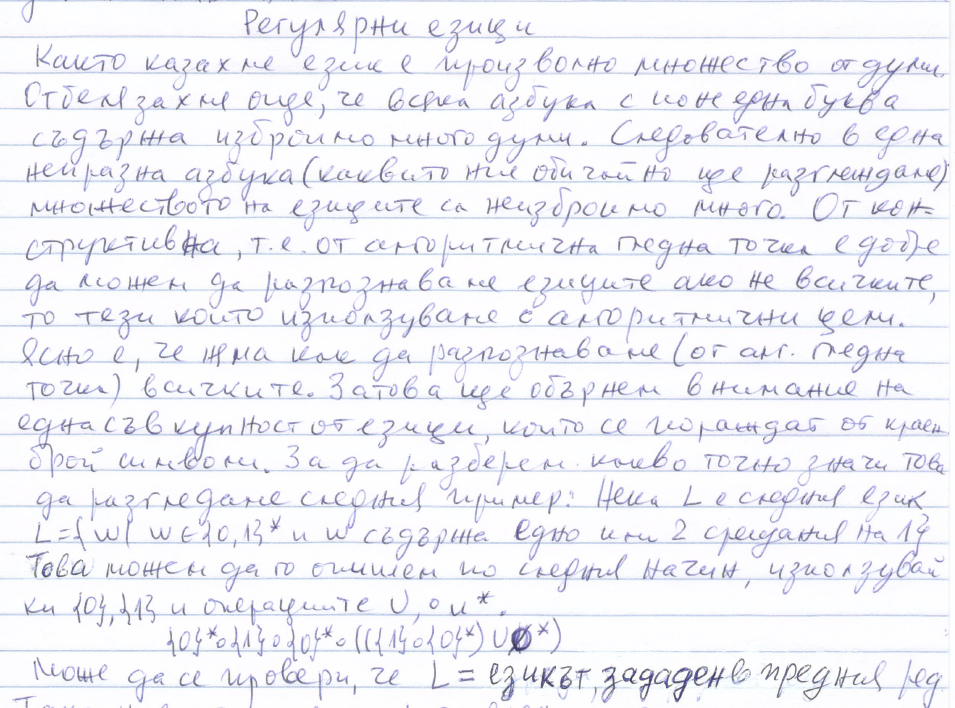 Регулярни езици
Както казахме език е произволно множество от думи.
Отбелязахме още, че всяка азбука с поне една буква
съдържа изброимо много думи. Следователно в една
непразна азбука (каквито ние обичайно ще разглеждаме)
множеството на езиците са неизброимо много. От кон-
структивна, т.е. от алгоритмична гледна точка е добре
да можем да разпознаваме езиците ако не всичките,
то тези които използуваме с алгоритмични цели.
Ясно е, че няма как да разпознаваме (от алг. гледна
точка) всичките. Затова ще обърнем внимание на
една съвкупност от езици, които се пораждат от краен
брой символи. За да разберем какво точно значи това
да разгледаме следния пример: Нека L е следния език
L={w| w∈{0,1}* и w съдържа едно или 2 срещания на 1}
Това можем да го опишем по следния начин, използувай
ки {0},{1} и операциите ∪,∘ и *.
{0}*∘{1}∘{0}*∘(({1}∘{0}*)∪∅*)
Може да се провери, че L = езикът, зададен в предния ред